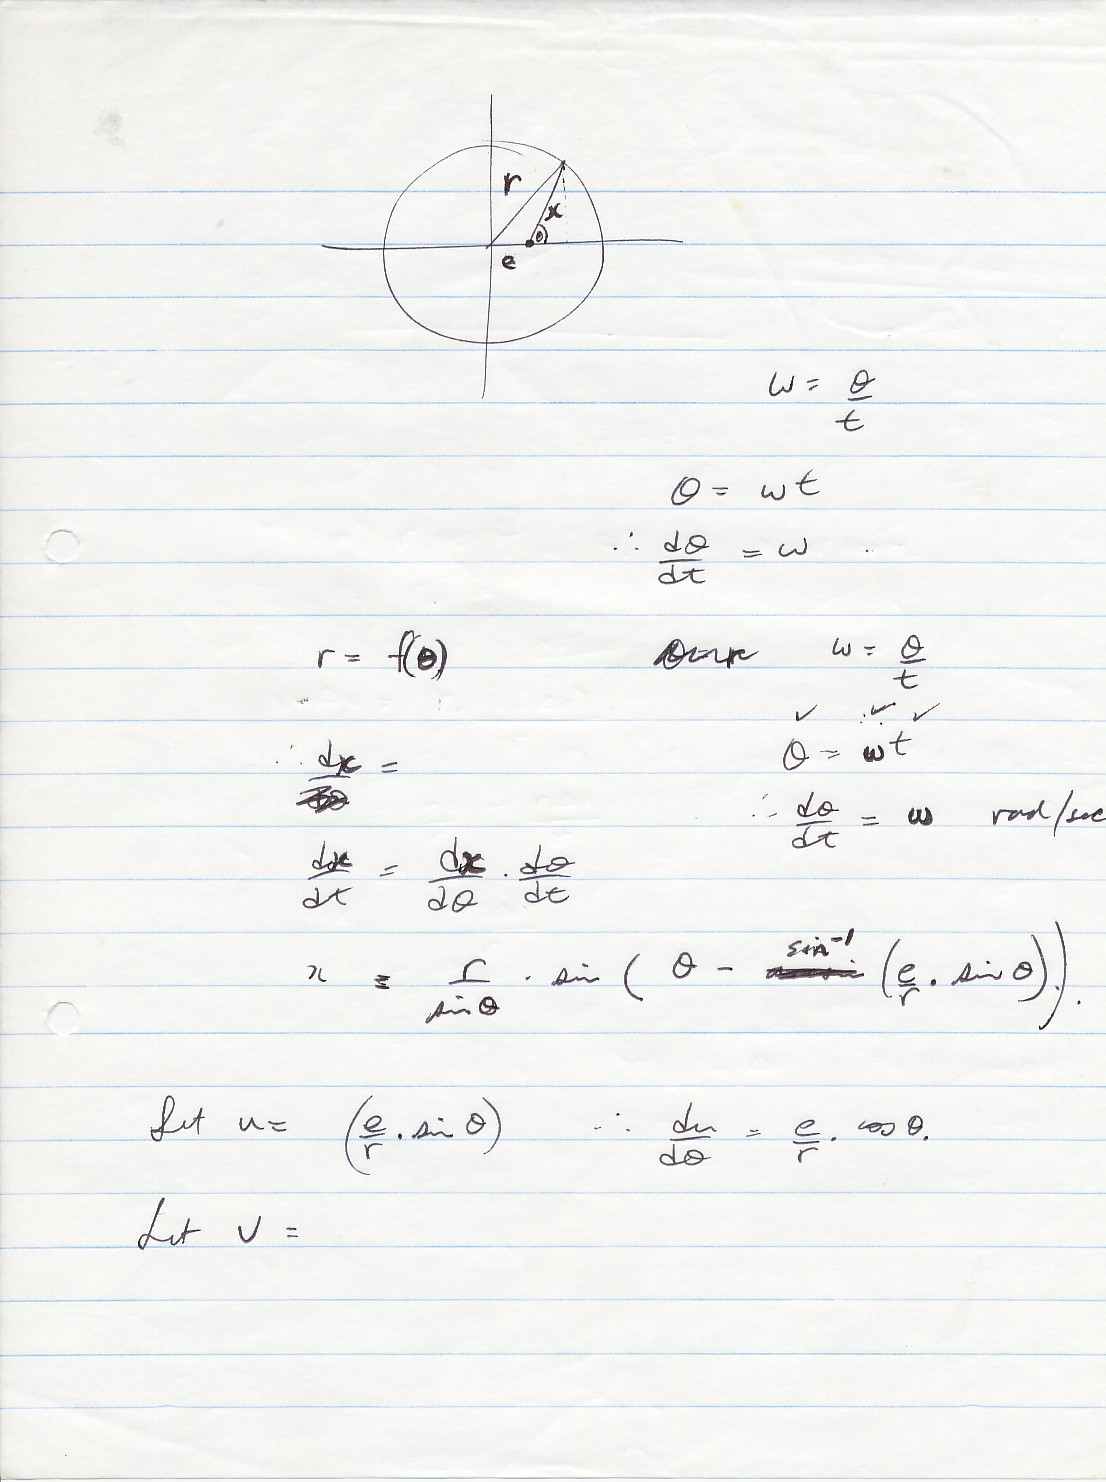 r
x
θ
e
ω = θ/t
θ = ωt
∴ dθ/dt = ω
r = f(θ) ω = θ/t
θ = ωt
∴ dx/dθ = ∴ dθ/dt = ω rad/sec
dx/dt = dx/dθ . dθ/dt
x = r/sinθ . sin ( θ - sin⁻¹ (e/r . sin θ) ).
Let u = (e/r . sin θ) ∴ du/dθ = e/r . cos θ.
Let v =